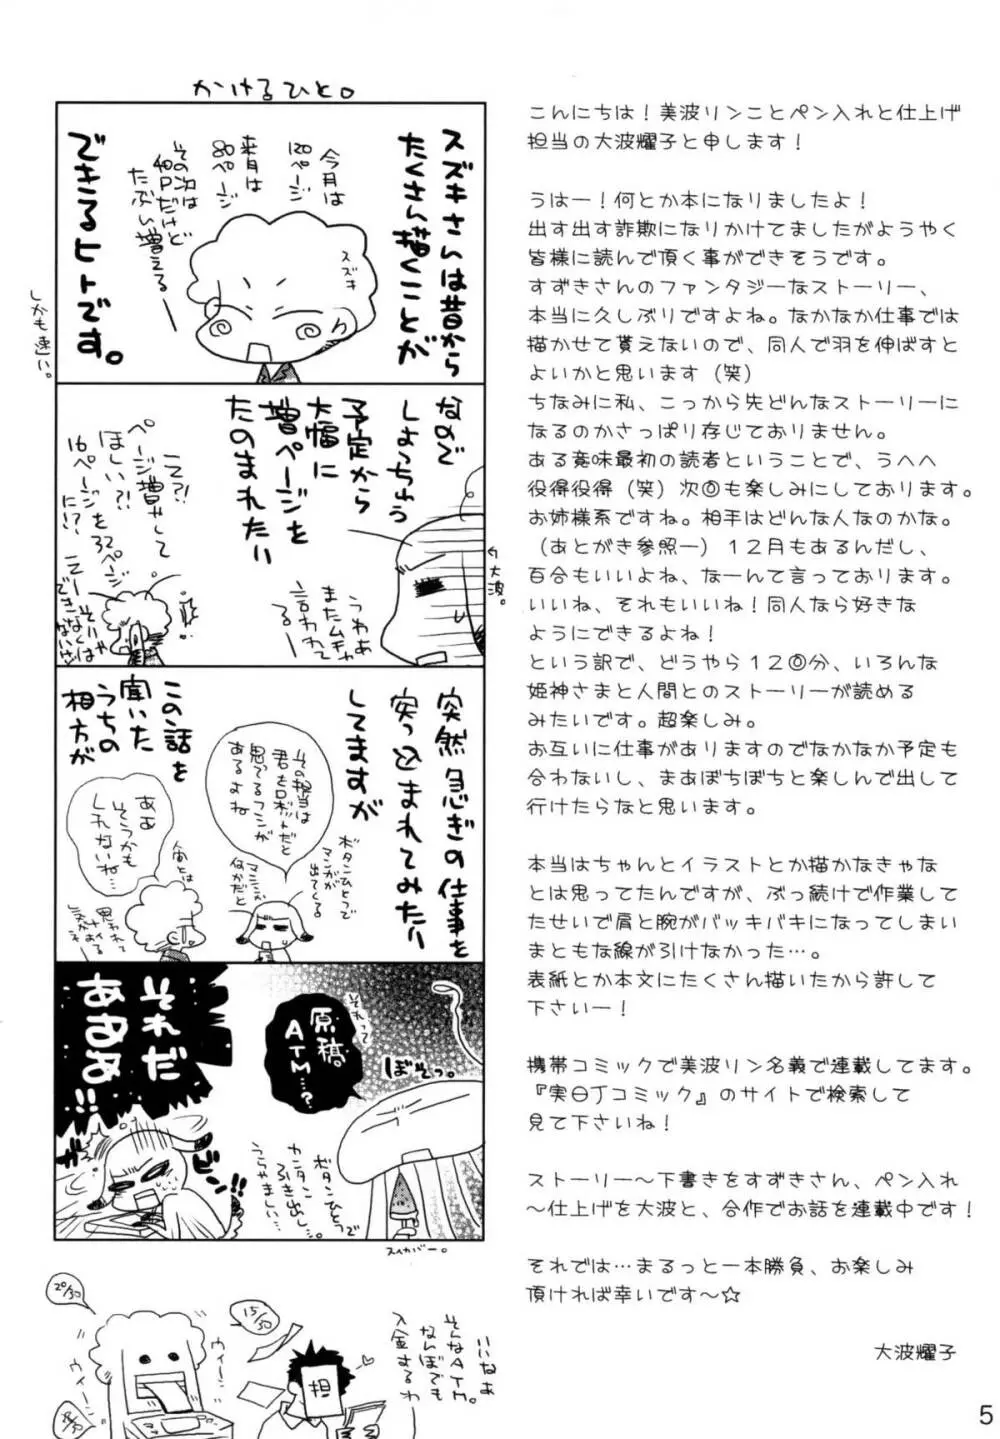 かけるひと。
スズキさんは昔から
たくさん描くことが
できるヒトです。
しかも速い。
今月は
120ページ
来月は
80ページ
その次は
40Pだけど
たぶん増える
スズキ
なので
しょっちゅう
予定から
大幅に
増ページを
たのまれたい
大波。
うわぁ
またムチャ
言われて
る
え?!
ページ増やして
ほしい?!
16ページを32ページ
に!?
突然急ぎの仕事を
突っ込まれてみたい
してますが
この話を
聞いた
うちの
相方が
その担当は
君をロボットだと
思ってるフシが
あるよね
ボタンひとつで
マンガが
出てくる
ああ
そうかも
しれないね…
それって
原稿
ATM…?
ぼそっ。
それだ
あああ
!!
ガッ
ビン!!
ボタンひとつで
カンタン
引き出し…。
うらやましい…
スイカバー。
20/30
15/30
ウィーン
ウィーン
担
いいなぁ
そんなATM。
なんぼでも
入金するわ
こんにちは！美波リンことペン入れと仕上げ
担当の大波耀子と申します！
うはー！何とか本になりましたよ！
出す出す詐欺になりかけてましたがようやく
皆様に読んで頂く事ができそうです。
すずきさんのファンタジーなストーリー、
本当に久しぶりですよね。なかなか仕事では
描かせて貰えないので、同人で羽を伸ばすと
よいかと思います（笑）
ちなみに私、こっから先どんなストーリーに
なるのかさっぱり存じておりません。
ある意味最初の読者ということで、うへへ
役得役得（笑）次回も楽しみにしております。
お姉様系ですね。相手はどんな人なのかな。
（あとがき参照ー）１２月もあるんだし、
百合もいいよね、なーんて言っております。
いいね、それもいいね！同人なら好きな
ようにできるよね！
という訳で、どうやら１２回分、いろんな
姫神さまと人間とのストーリーが読める
みたいです。超楽しみ。
お互いに仕事がありますのでなかなか予定も
合わないし、まあぼちぼちと楽しんで出して
行けたらなと思います。
本当はちゃんとイラストとか描かなきゃな
とは思ってたんですが、ぶっ続けで作業して
たせいで肩と腕がバッキバキになってしまい
まともな線が引けなかった…。
表紙とか本文にたくさん描いたから許して
下さいー！
携帯コミックで美波リン名義で連載してます。
『実日Jコミック』のサイトで検索して
見て下さいね！
ストーリー～下書きをすずきさん、ペン入れ
～仕上げを大波と、合作でお話を連載中です！
それでは…まるっと一本勝負、お楽しみ
頂ければ幸いです～☆
大波耀子
5